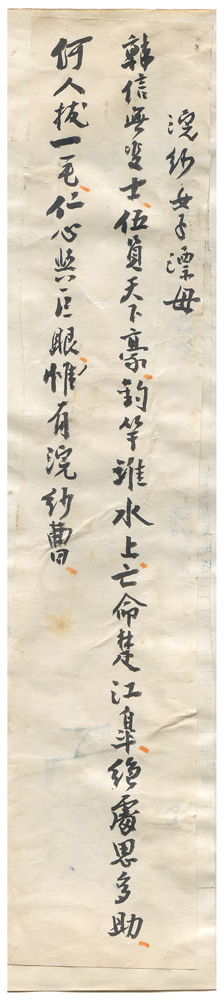 浣紗女子漂母
韓信無双士伍員天下豪釣竿淮水上亡命楚江皋絕處思多助
何人拔一毛仁心與巨眼惟有浣紗曹